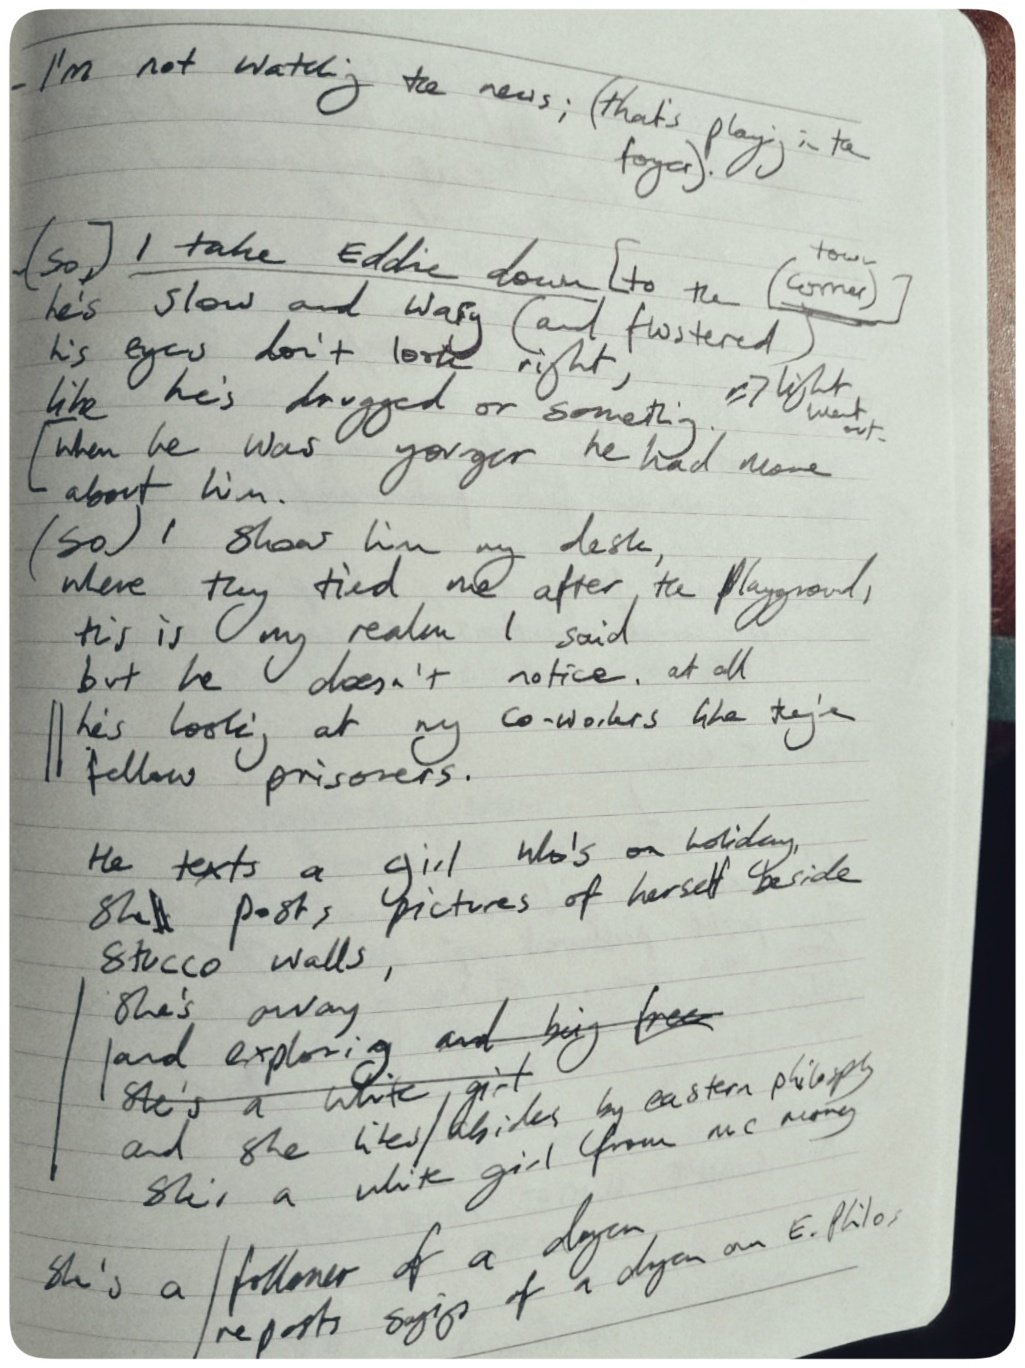 - I'm not watching the news; (that's playing in the
foyer).
town
(So,) I take Eddie down [to the (corner)]
he's slow and wary (and flustered)
his eyes don't look right,
=> light
went
out.
like he's drugged or something.
[when he was younger he had more
about him.
(So) I show him my desk,
where they tied me after the playground,
this is my realm I said
but he doesn't notice. at all
he's looking at my co-workers like they're
fellow prisoners.
He texts a girl who's on holiday,
she posts pictures of herself beside
stucco walls,
she's away
and exploring and being free
she's a white girl
and she likes/abides by eastern philosophy
she's a white girl (from mc money
she's a / follower of a doyen
reposts sayings of a doyen on E. Philos